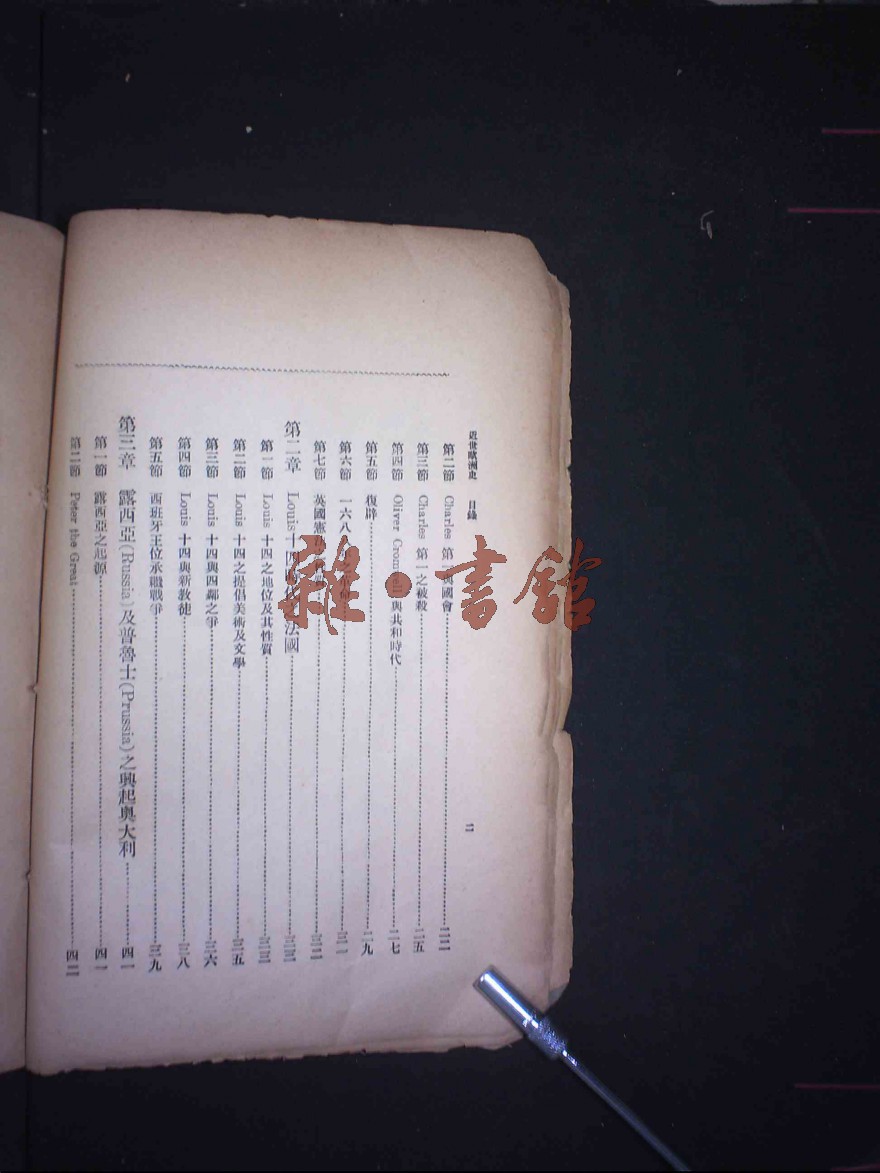 近世歐洲史 目錄 二
第二節 Charles 第一與國會 二二
第三節 Charles 第一之被殺 二五
第四節 Oliver Cromwell 與共和時代 二七
第五節 復辟 二九
第六節 一六八 三一
第七節 英國憲 三二
第二章 Louis 十四 法國 三三
第一節 Louis 十四之地位及其性質 三三
第二節 Louis 十四之提倡美術及文學 三五
第三節 Louis 十四與四鄰之爭 三六
第四節 Louis 十四與新教徒 三八
第五節 西班牙王位承繼戰爭 三九
第三章 露西亞(Russia)及普魯士(Prussia)之興起奧大利 四一
第一節 露西亞之起源 四一
第二節 Peter the Great 四二
雜·書館